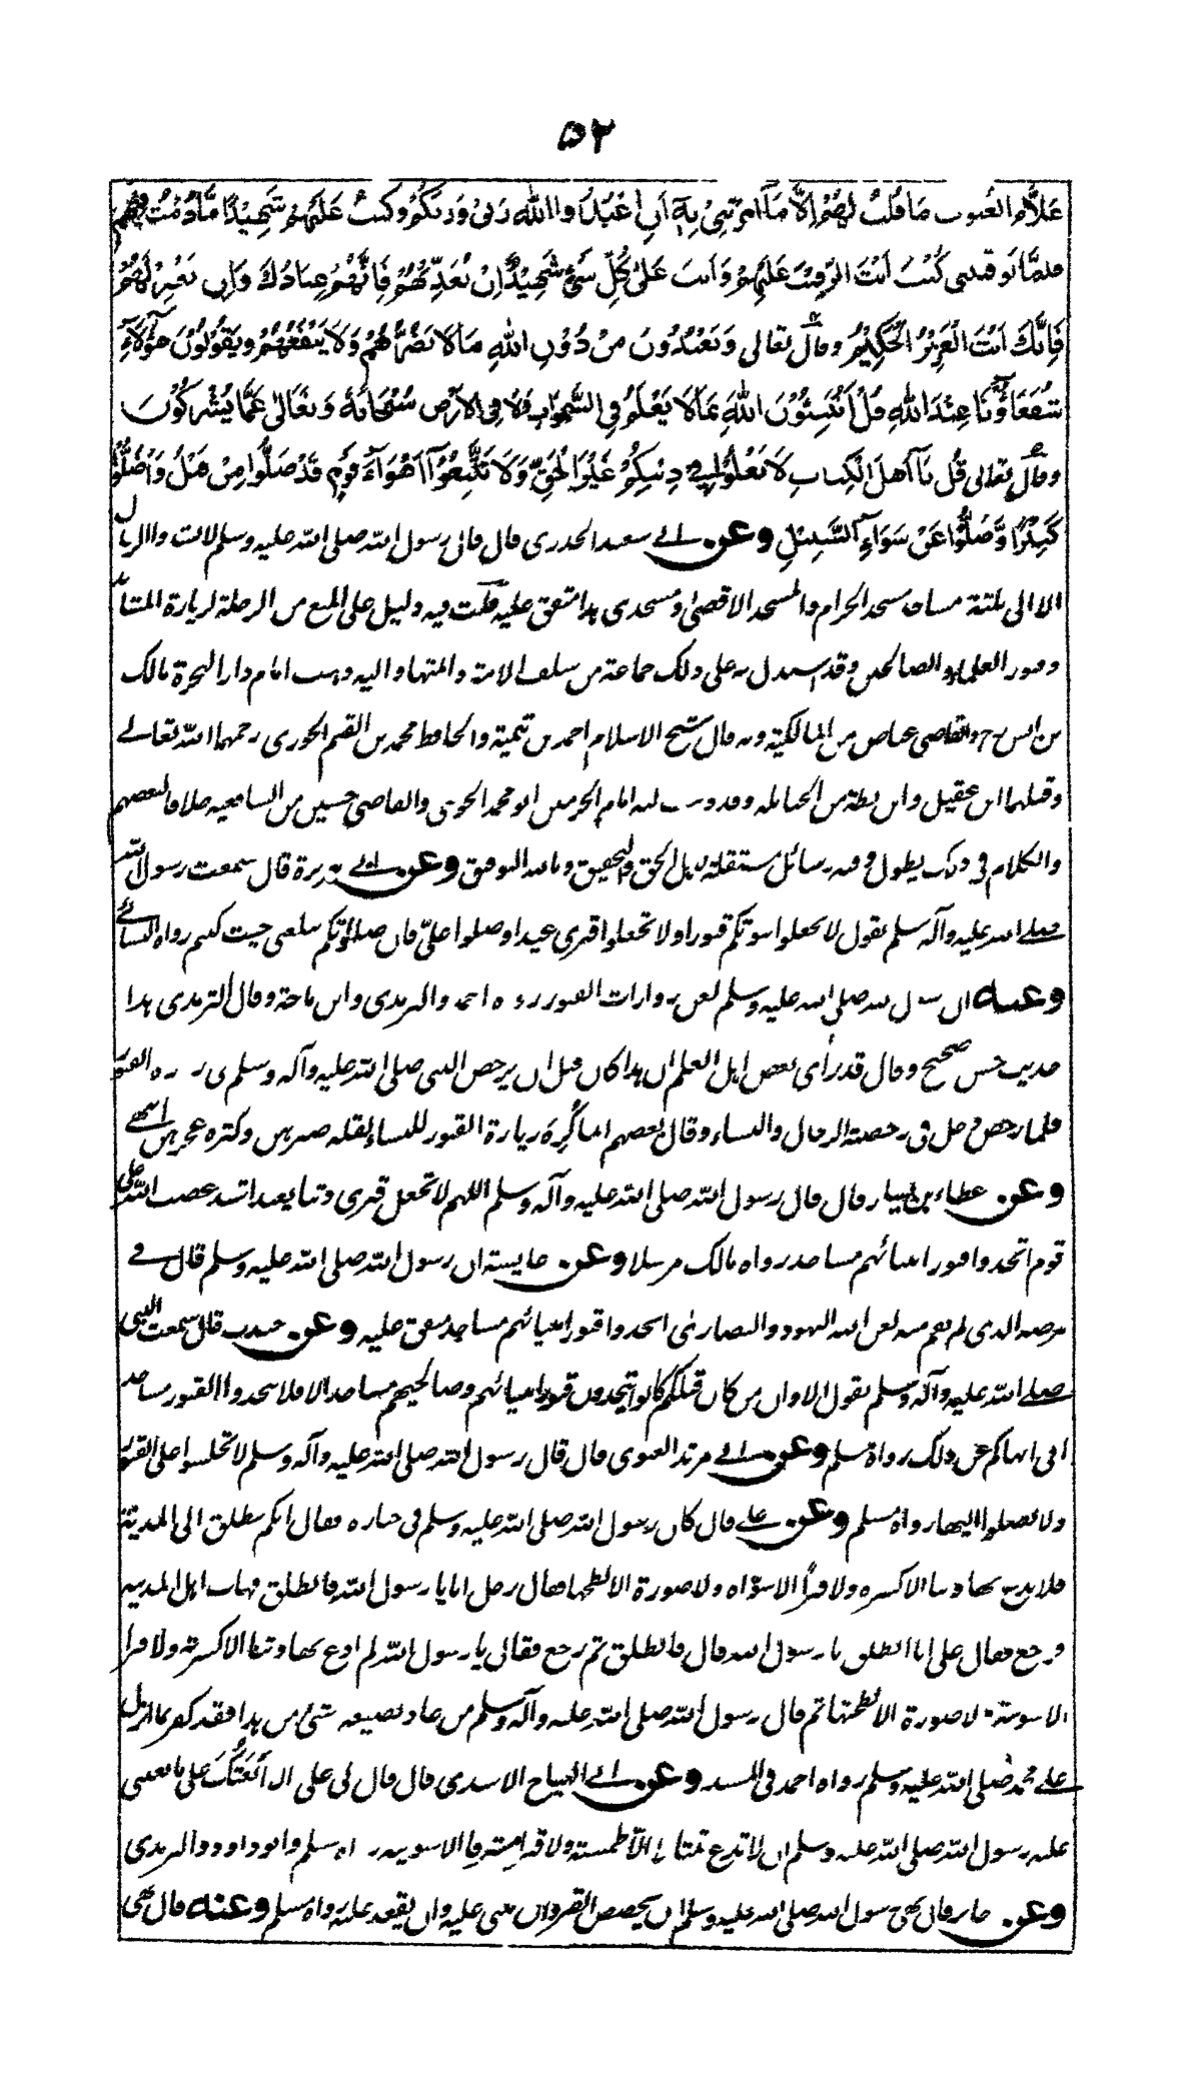 ۵۲
عَلَّامُ الغُيوب مَا قُلْتُ لَهُمْ اِلَّا مَآ اَمَرْتَنِيْ بِهٖٓ اَنِ اعْبُدُوا اللّٰهَ رَبِّيْ وَرَبَّكُمْ وَكُنْتُ عَلَيْهِمْ شَهِيْدًا مَّا دُمْتُ فِيْهِمْ
فلمَّا توفيتني كُنْتَ اَنْتَ الرَّقِيْبَ عَلَيْهِمْ وَاَنتَ عَلىٰ كُلِّ شَيْءٍ شَهِيْدٌ اِنْ تُعَذِّبْهُمْ فَاِنَّهُمْ عِبَادُكَ وَاِن تَغْفِرْ لَهُمْ
فَاِنَّكَ اَنْتَ الْعَزِيْزُ الْحَكِيْمُ وقال تعالى وَيَعْبُدُوْنَ مِنْ دُوْنِ اللّٰهِ مَا لَا يَضُرُّهُمْ وَلَا يَنْفَعُهُمْ وَيَقُوْلُوْنَ هٰٓؤُلَآءِ
شُفَعَآؤُنَا عِنْدَ اللّٰهِ قُلْ اَتُنَبِّئُوْنَ اللّٰهَ بِمَا لَا يَعْلَمُ فِي السَّمٰوٰتِ وَلَا فِي الْاَرْضِ سُبْحَانَهٗ وَتَعَالٰى عَمَّا يُشْرِكُوْنَ
وقال تعالى قُل يَآ اَهلَ الْكِتابِ لَا تَغْلُوْا فِيْ دِيْنِكُمْ غَيْرَ الْحَقِّ وَلَا تَتَّبِعُوْٓا اَهْوَآءَ قَوْمٍ قَدْ ضَلُّوا مِنْ قَبْلُ وَاَضَلُّوْا
كَثِيْرًا وَّضَلُّوْا عَنْ سَوَآءِ السَّبِيْلِ وعن ابي سعيد الخدري قال قال رسول الله صلى الله عليه وسلم لا تشد الرحال
الا الى ثلثة مساجد مسجد الحرام والمسجد الاقصى ومسجدي هذا متفق عليه قلت فيه دليل على المنع من الرحلة لزيارة المشاهد
وقبور العلماء والصالحين وقد استدل به على ذلك جماعة من سلف الامة وائمتها واليه ذهب امام دار الهجرة مالك
بن انس رح والقاضي عياض من المالكية وبه قال شيخ الاسلام احمد بن تيمية والحافظ محمد بن القيم الجوزي رحمهما الله تعالى
وقبلهما ابن عقيل وابن بطة من الحنابلة وقد ذهب اليه امام الحرمين ابو محمد الجويني والقاضي حسين من الشافعية خلافا لبعضهم
والكلام في ذلك يطول وفيه رسائل مستقلة لاهل الحق والتحقيق وبالله التوفيق وعن ابي هريرة قال سمعت رسول الله
صلى الله عليه وآله وسلم يقول لا تجعلوا بيوتكم قبورا ولا تجعلوا قبري عيدا وصلوا عليّ فان صلوٰتكم تبلغني حيث كنتم رواه النسائي
وعنه ان رسول الله صلى الله عليه وسلم لعن زوارات القبور رواه احمد والترمذي وابن ماجة وقال الترمذي هذا
حديث حسن صحيح وقال قد رأى بعض اهل العلم ان هذا كان قبل ان يرخص النبي صلى الله عليه وآله وسلم في زيارة القبور
فلما رخص دخل في رخصته الرجال والنساء وقال بعضهم انما كُرِهَ زيارة القبور للنساء لقلة صبرهن وكثرة جزعهن انتهى
وعن عطاء بن يسار قال قال رسول الله صلى الله عليه وآله وسلم اللهم لا تجعل قبري وثنا يعبد اشتد غضب الله على
قوم اتخذوا قبور انبيائهم مساجد رواه مالك مرسلا وعن عايشة ان رسول الله صلى الله عليه وسلم قال في
مرضه الذي لم يقم منه لعن الله اليهود والنصارىٰ اتخذوا قبور انبيائهم مساجد متفق عليه وعن جندب قال سمعت النبي
صلى الله عليه وآله وسلم يقول الا وان من كان قبلكم كانوا يتخذون قبور انبيائهم وصالحيهم مساجد الا فلا تتخذوا القبور مساجد
اني انهاكم عن ذلك رواه مسلم وعن ابي مرثد الغنوي قال قال رسول الله صلى الله عليه وآله وسلم لا تجلسوا على القبور
ولا تصلوا اليها رواه مسلم وعن علي قال كان رسول الله صلى الله عليه وسلم في جنازة فقال ايكم ينطلق الى المدينة
فلا يدع بها وثنا الا كسره ولا قبرًا الا سوّاه ولا صورة الا لطخها فقال رجل انا يا رسول الله فانطلق فهاب اهل المدينة
فرجع فقال علي انا انطلق يا رسول الله قال فانطلق ثم رجع فقال يا رسول الله لم ادع بها وثنا الا كسرته ولا قبرا
الا سويته ولا صورة الا لطختها ثم قال رسول الله صلى الله عليه وآله وسلم من عاد لصنيعه شئ من هذا فقد كفر بما انزل
على محمد صلى الله عليه وسلم رواه احمد في المسند وعن ابي الهياج الاسدي قال قال لي علي الا أبعثك على ما بعثني
عليه رسول الله صلى الله عليه وسلم ان لا تدع تمثالا الا طمسته ولا قبرا مشرفا الا سويته رواه مسلم وابو داود والترمذي
وعن جابر قال نهى رسول الله صلى الله عليه وسلم ان يجصص القبر وان يبنى عليه وان يقعد عليه رواه مسلم وعنه قال نهى